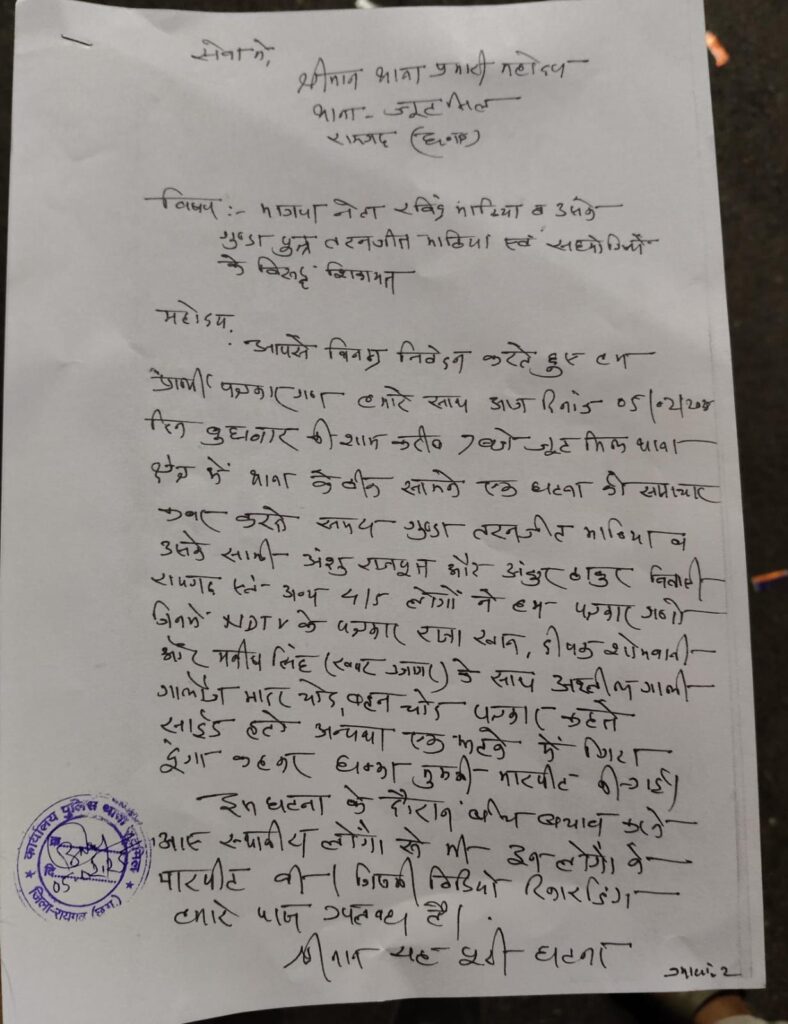 सेवा में,
श्रीमान थाना प्रभारी महोदय
थाना - जूटमिल
रायगढ़ (छ०ग०)
विषय :- भाजपा नेता रविन्द्र भाटिया व उसके
गुण्डा पुत्र तरनजीत भाटिया एवं सहयोगियों
के विरुद्ध शिकायत
महोदय,
आपसे विनम्र निवेदन करते हुए हम
प्रार्थी पत्रकार गण हमारे साथ आज दिनांक 05/02/
दिन बुधवार की शाम करीब 7 बजे जूट मिल थाना
क्षेत्र में थाना के ठीक सामने एक घटना की समाचार
कवर करते समय गुण्डा तरनजीत भाटिया व
उसके साथी अंशु राजपूत और अंकुर ठाकुर निवासी
रायगढ़ एवं अन्य 4/5 लोगों ने हम पत्रकार गणों
जिनमें NDTV के पत्रकार राजा खान, दीपक शोभवानी
और मनीष सिंह (खबर उजाग) के साथ अश्लील गाली
गालौज मादर चोद, बहन चोद पत्रकार कहते
साईड हटो अन्यथा एक झटके में गिरा
दूंगा कहकर धक्का मुक्की मारपीट की गई।
इस घटना के दौरान बीच बचाव करने
आए स्थानीय लोगों से भी इन लोगों ने
मारपीट की। जिसकी विडियो रिकारडिंग
हमारे पास उपलब्ध है।
श्रीमान यह पूरी घटना
2
कार्यालय पुलिस थाना जूटमिल
05
जिला-रायगढ़ (छ.ग.)